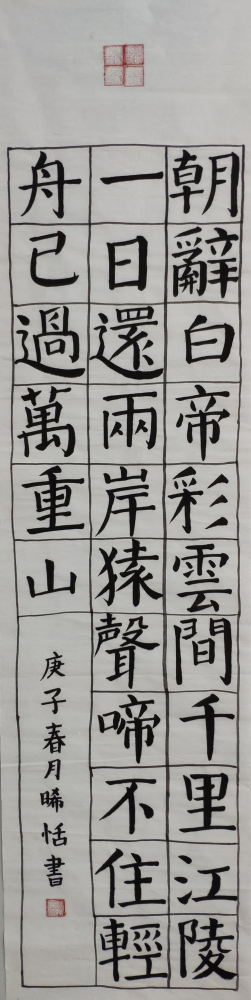 朝辭白帝彩雲間千里江陵
一日還兩岸猿聲啼不住輕
舟已過萬重山
庚子春月晞恬書